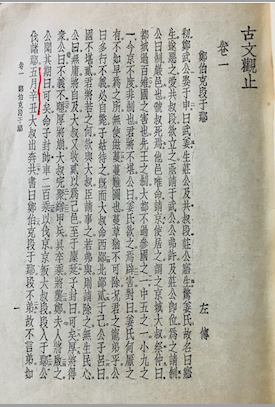 古文觀止
卷一
鄭伯克段于鄢 左傳
初鄭武公娶于申曰武姜生莊公及共叔段莊公寤生驚姜氏故名曰寤
生遂惡之愛共叔段欲立之亟請于武公公弗許及莊公即位爲之請制
公曰制巖邑也虢叔死焉他邑唯命請京使居之謂之京城大叔祭仲曰
都城過百雉國之害也先王之制大都不過參國之一中五之一小九之
一今京不度非制也君將不堪公曰姜氏欲之焉辟害對曰姜氏何厭之
有不如早爲之所無使滋蔓蔓難圖也蔓草猶不可除況君之寵弟乎公
曰多行不義必自斃子姑待之既而大叔命西鄙北鄙貳于己公子呂曰
國不堪貳君將若之何欲與大叔臣請事之若弗與則請除之無生民心
公曰無庸將自及大叔又收貳以爲己邑至于廩延子封曰可矣厚將得
衆公曰不義不暱厚將崩大叔完聚繕甲兵具卒乘將襲鄭夫人將啟之
公聞其期曰可矣命子封帥車二百乘以伐京京叛大叔段段入于鄢公
伐諸鄢五月辛丑大叔出奔共書曰鄭伯克段于鄢段不弟故不言弟如
卷一 鄭伯克段于鄢 一